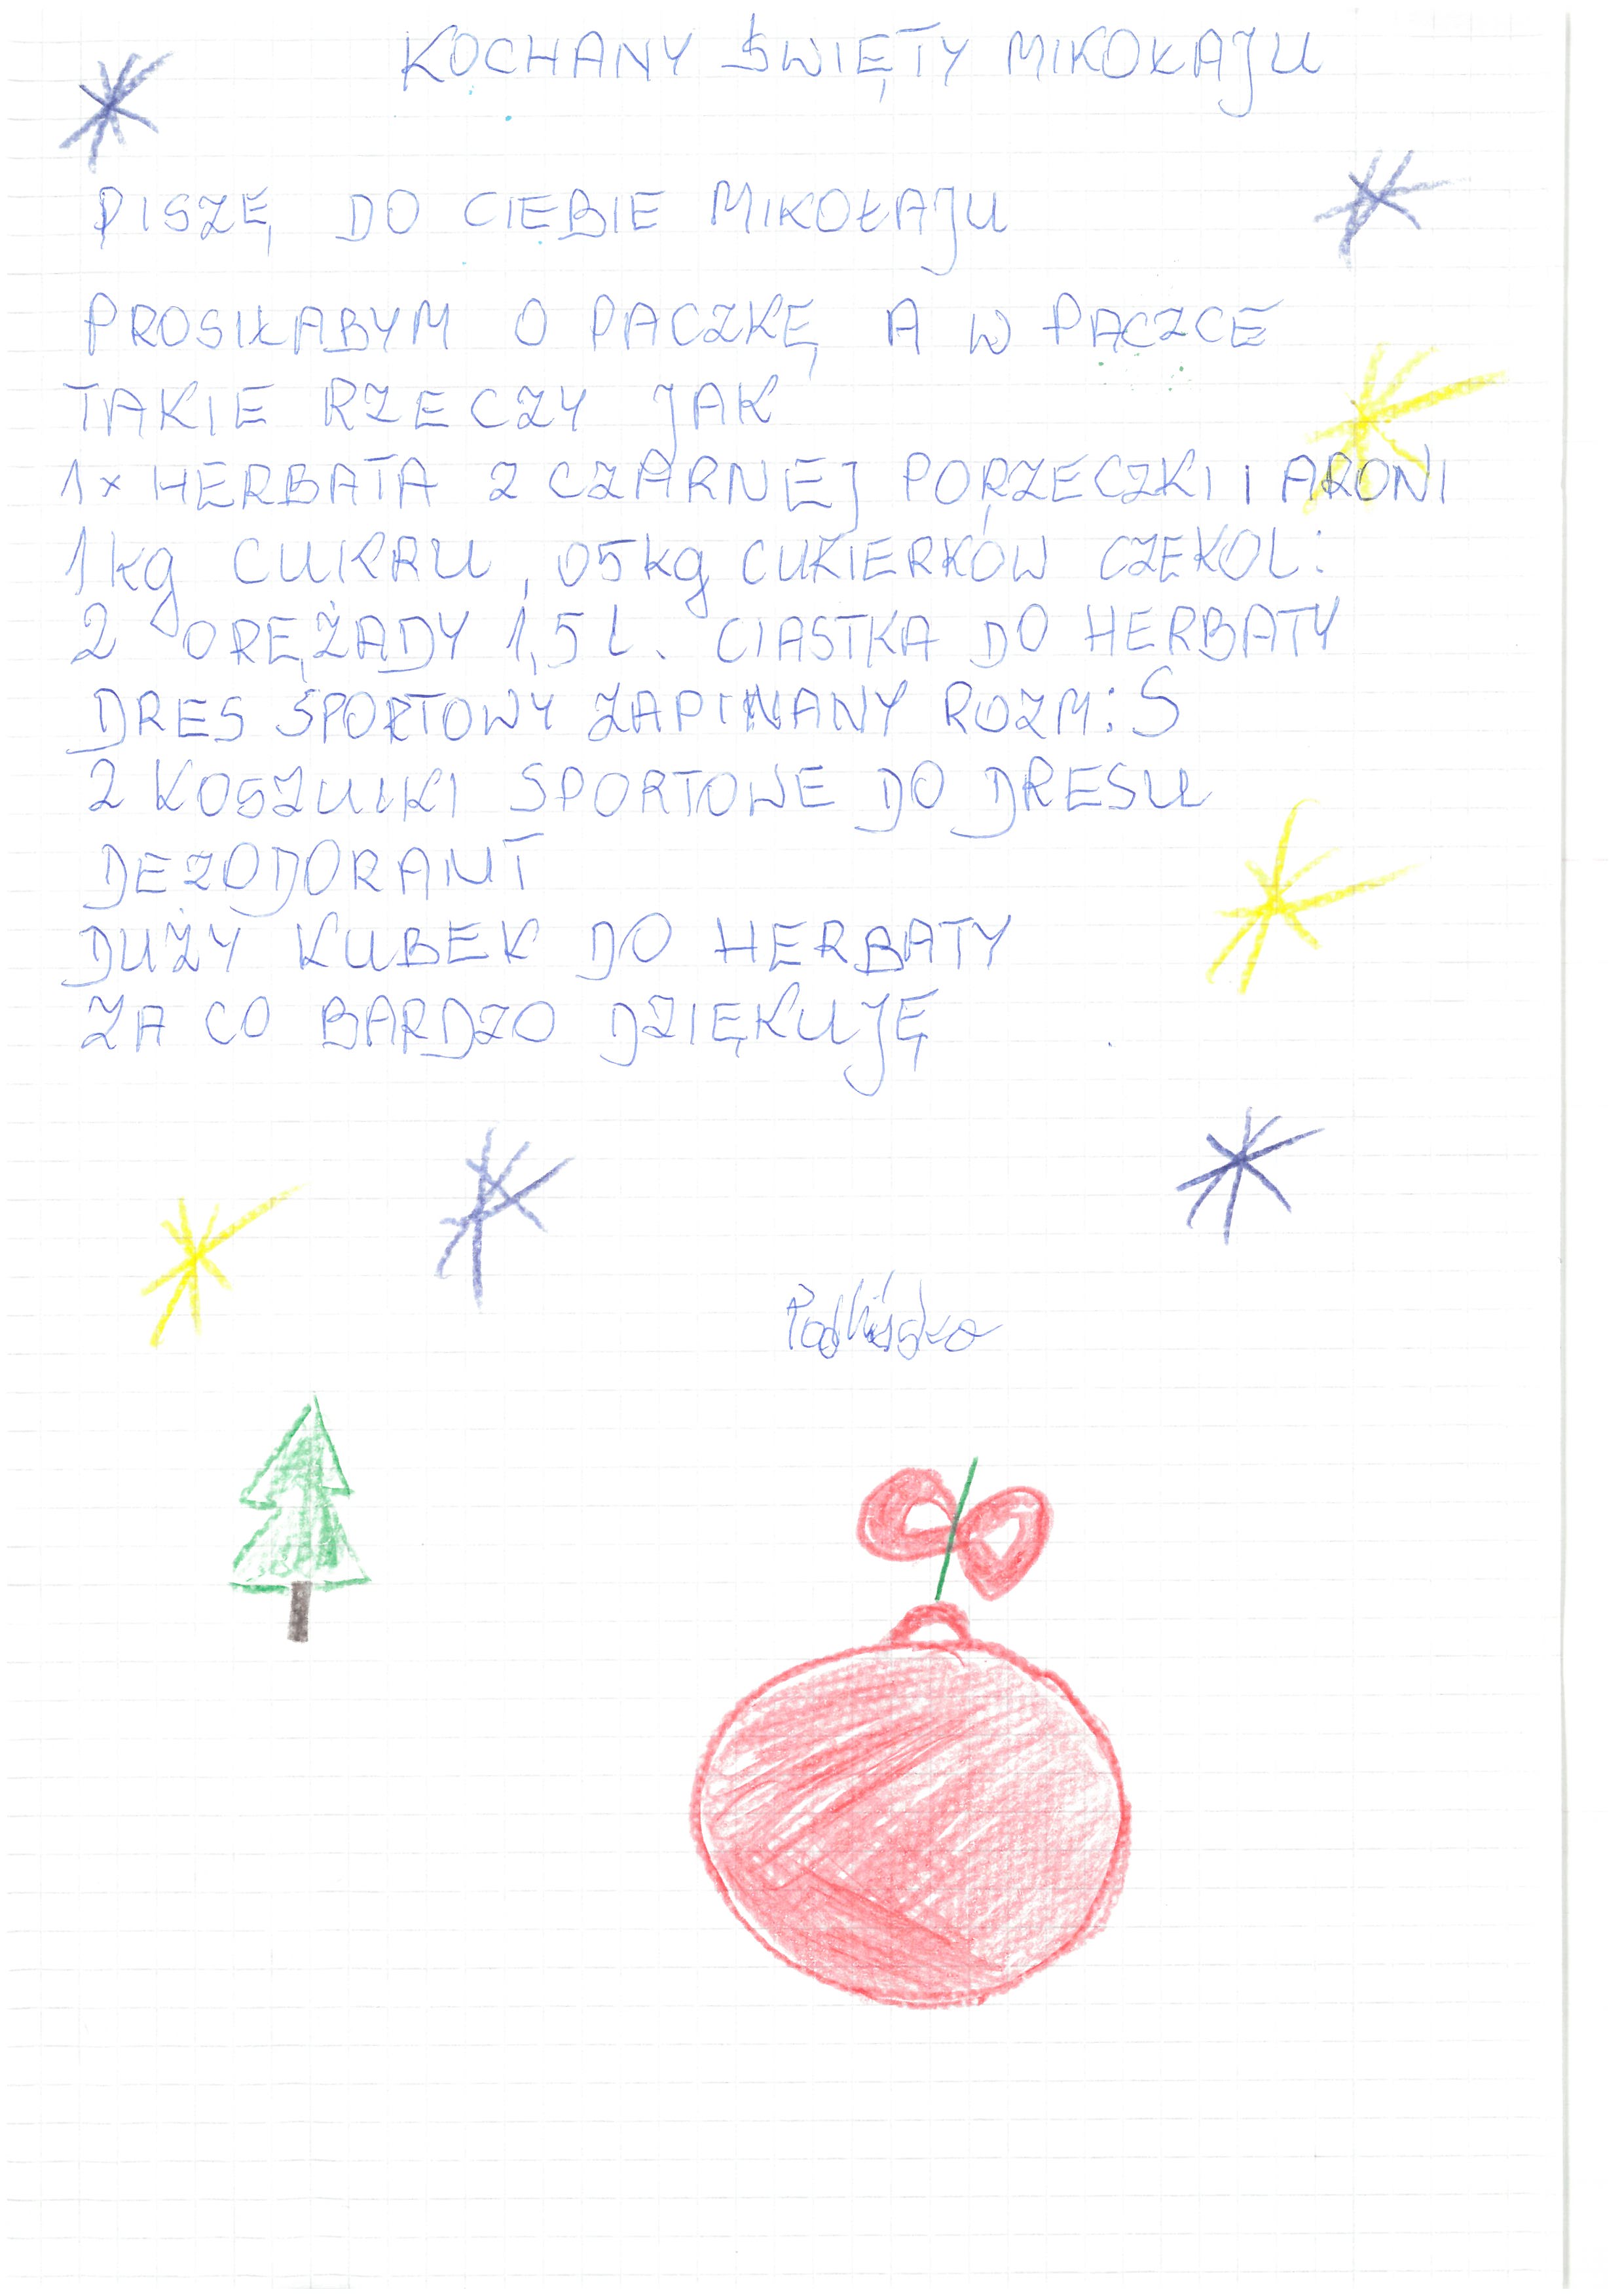 KOCHANY ŚWIĘTY MIKOŁAJU
PISZĘ DO CIEBIE MIKOŁAJU
PROSIŁABYM O PACZKĘ A W PACZCE
TAKIE RZECZY JAK
1x HERBATA Z CZARNEJ PORZECZKI I ARONI
1kg CUKRU, 05kg CUKIERKÓW CZEKOL:
2 ORĘŻADY 1,5 L. CIASTKA DO HERBATY
DRES SPORTOWY ZAPINANY ROZM: S
2 KOSZULKI SPORTOWE DO DRESU
DEZODORANT
DUŻY KUBEK DO HERBATY
ZA CO BARDZO DZIĘKUJĘ